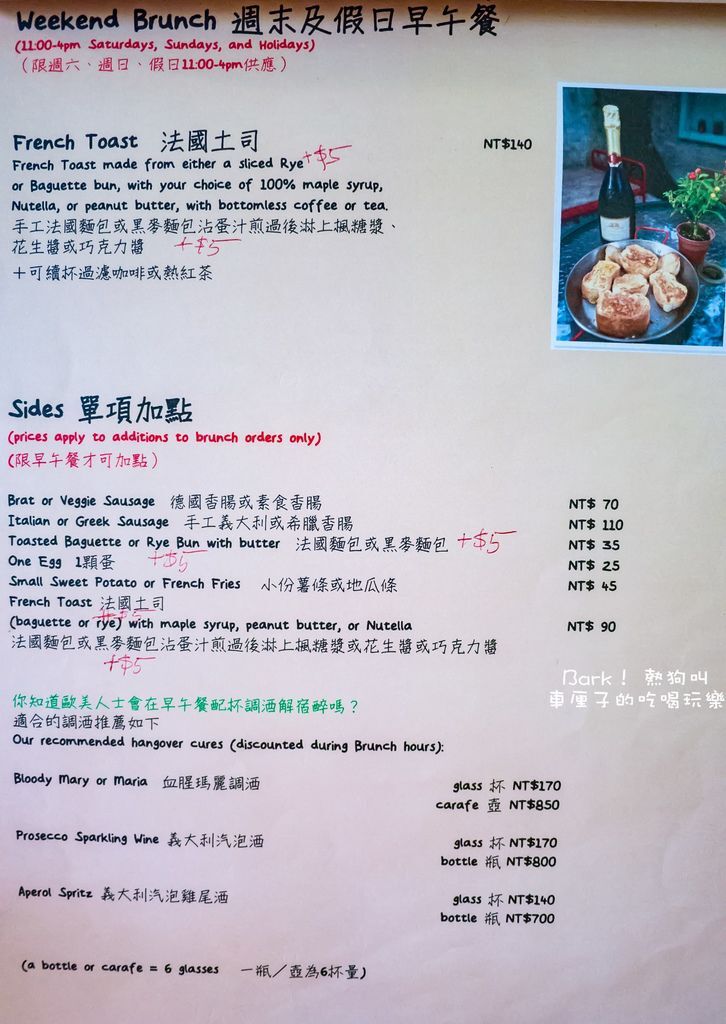 Weekend Brunch 週末及假日早午餐
(11:00-4pm Saturdays, Sundays, and Holidays)
（限週六、週日、假日11:00-4pm供應）
French Toast 法國土司 NT$140
French Toast made from either a sliced Rye +$5
or Baguette bun, with your choice of 100% maple syrup,
Nutella, or peanut butter, with bottomless coffee or tea.
手工法國麵包或黑麥麵包沾蛋汁煎過後淋上楓糖漿、
花生醬或巧克力醬 +$5
＋可續杯過濾咖啡或熱紅茶
Sides 單項加點
(prices apply to additions to brunch orders only)
(限早午餐才可加點）
Brat or Veggie Sausage 德國香腸或素食香腸 NT$ 70
Italian or Greek Sausage 手工義大利或希臘香腸 NT$ 110
Toasted Baguette or Rye Bun with butter 法國麵包或黑麥麵包 +$5 NT$ 35
One Egg 1顆蛋 +$5 NT$ 25
Small Sweet Potato or French Fries 小份薯條或地瓜條 NT$ 45
French Toast 法國土司
+$5
(baguette or rye) with maple syrup, peanut butter, or Nutella NT$ 90
法國麵包或黑麥麵包沾蛋汁煎過後淋上楓糖漿或花生醬或巧克力醬
+$5
Bark！ 熱狗叫
車厘子的吃喝玩樂
你知道歐美人士會在早午餐配杯調酒解宿醉嗎？
適合的調酒推薦如下
Our recommended hangover cures (discounted during Brunch hours):
Bloody Mary or Maria 血腥瑪麗調酒 glass 杯 NT$170
carafe 壺 NT$850
Prosecco Sparkling Wine 義大利汽泡酒 glass 杯 NT$170
bottle 瓶 NT$800
Aperol Spritz 義大利汽泡雞尾酒 glass 杯 NT$140
bottle 瓶 NT$700
(a bottle or carafe = 6 glasses 一瓶／壺為6杯量)